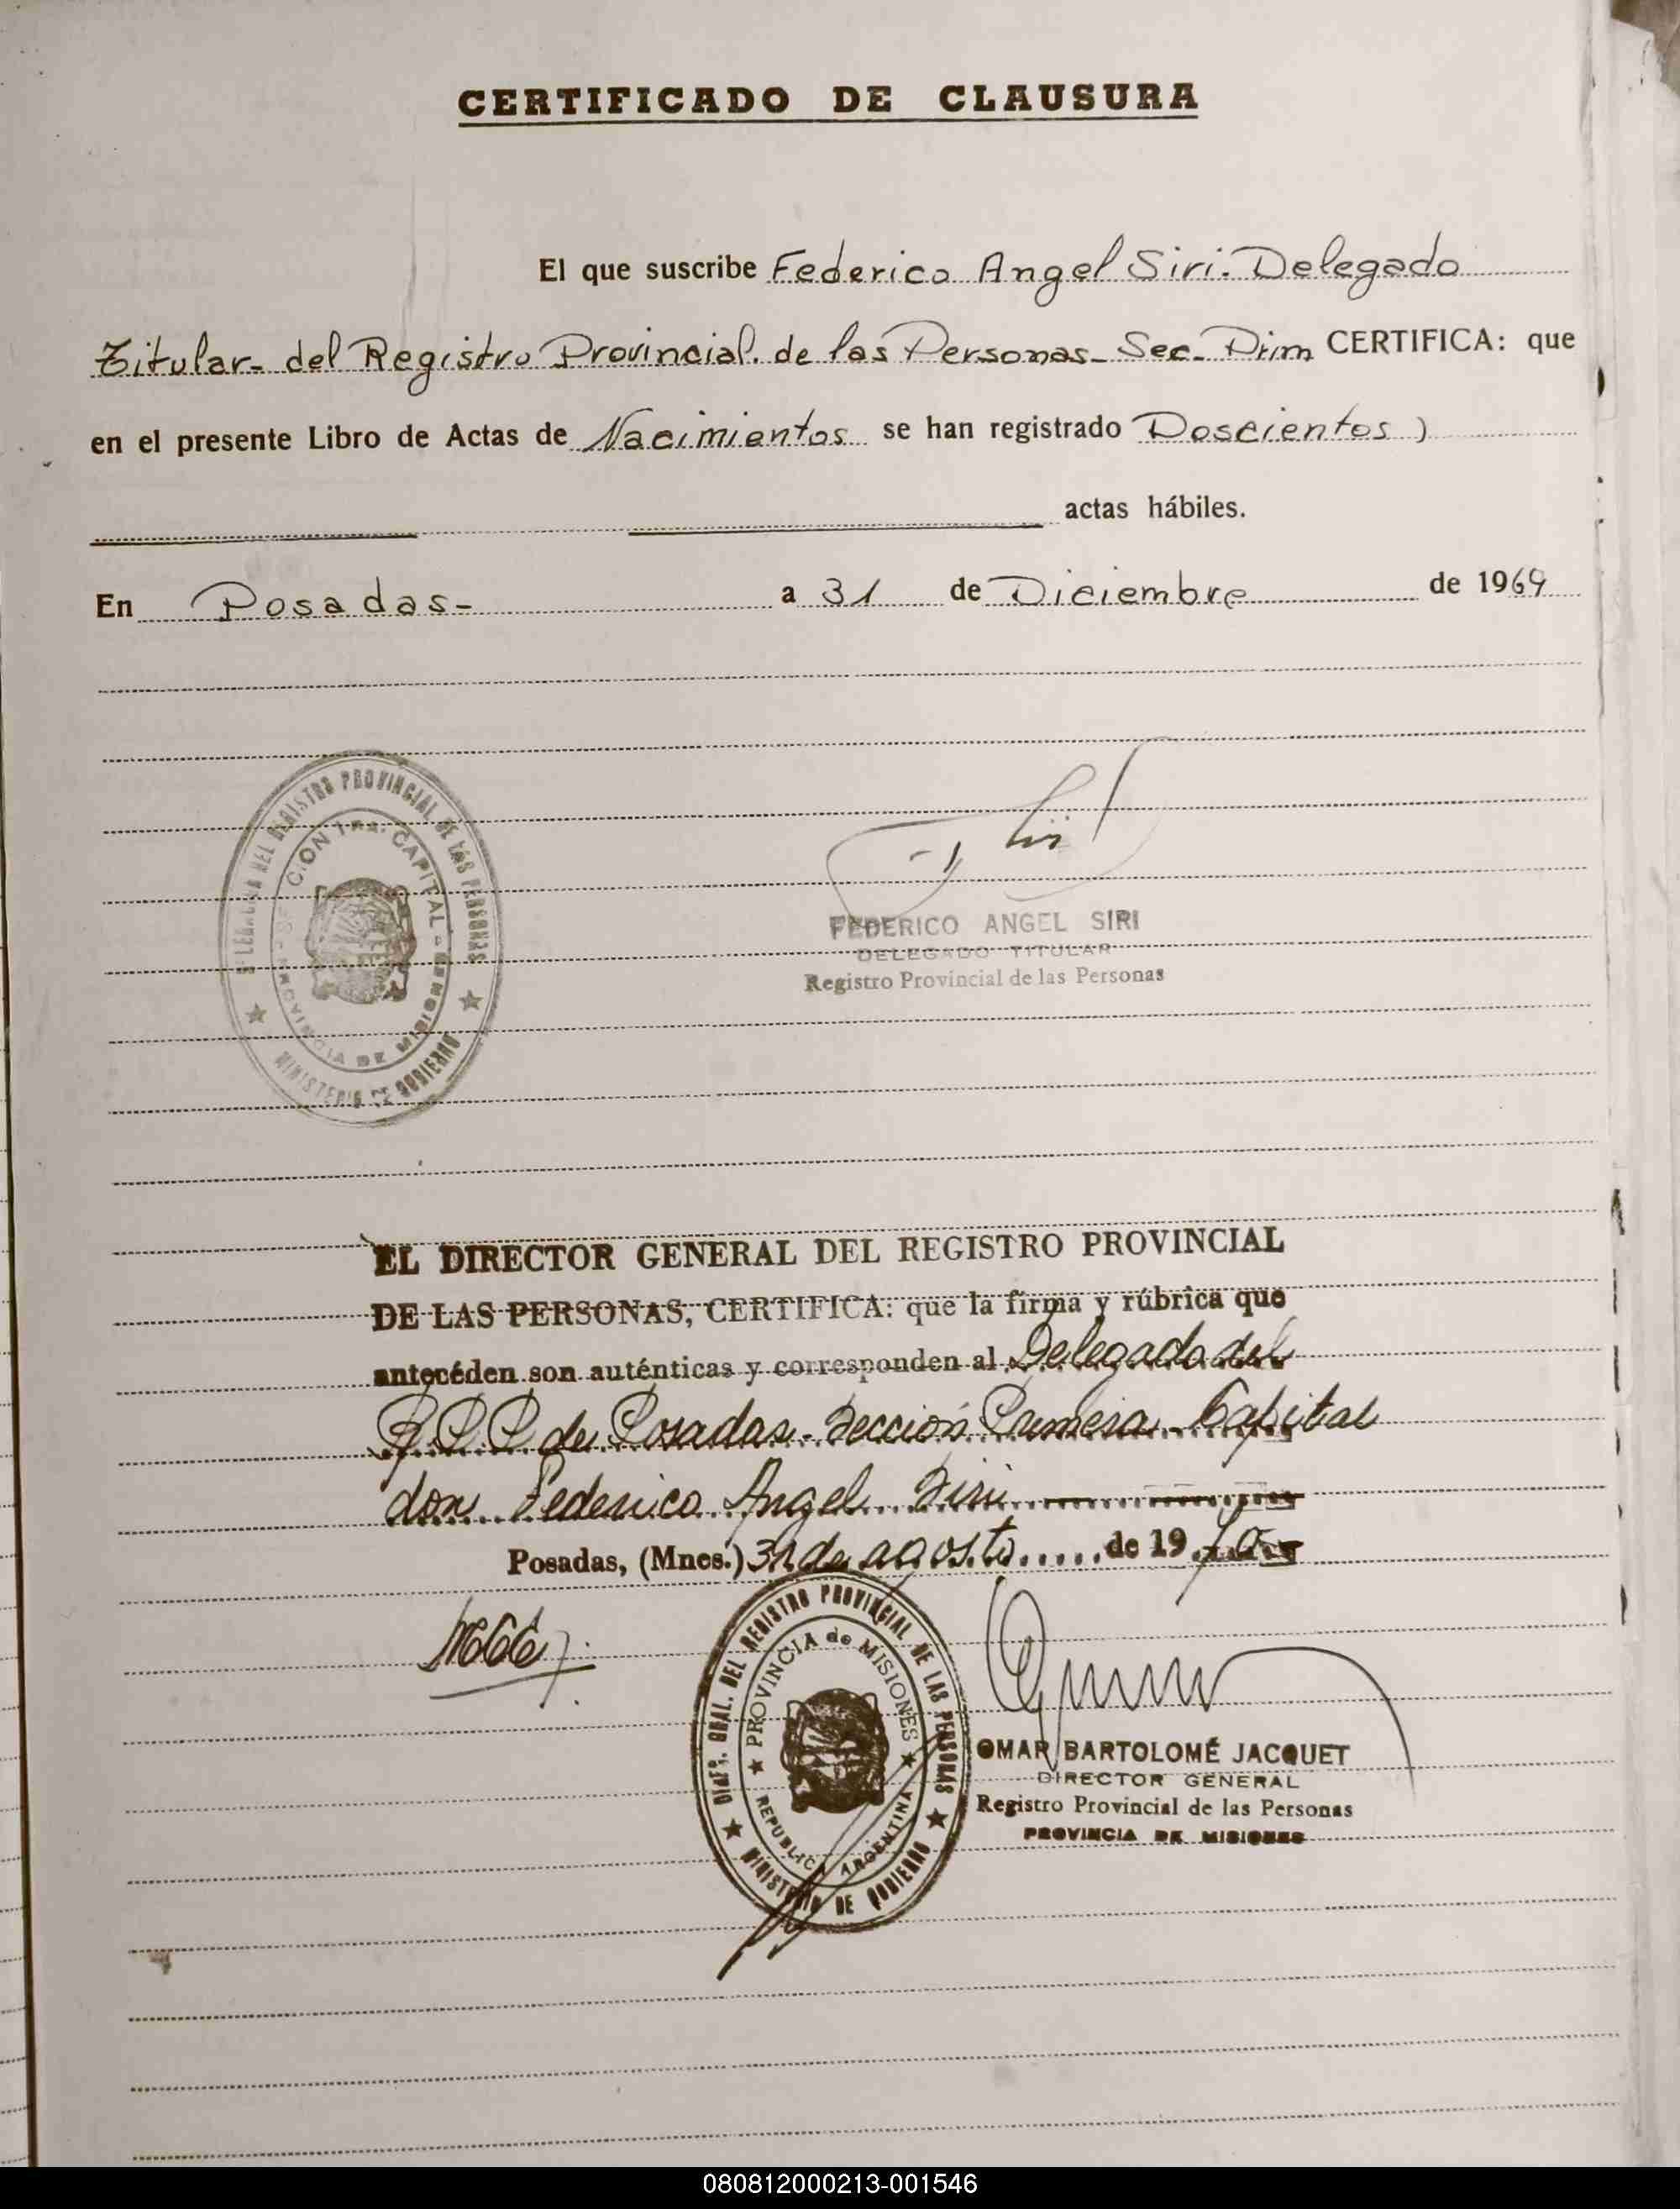 CERTIFICADO DE CLAUSURA
El que suscribe Federico Angel Siri. Delegado
Titular- del Registro Provincial. de las Personas- Sec. Prim CERTIFICA: que
en el presente Libro de Actas de Nacimientos se han registrado Doscientos)
actas hábiles.
En Posadas- a 31 de Diciembre de 1969
DELEGACIA DEL REGISTRO PROVINCIAL DE LAS PERSONAS
CION 1ra. CAPITAL
PROVINCIA DE MISIONES
MINISTERIO DE GOBIERNO
FEDERICO ANGEL SIRI
DELEGADO TITULAR
Registro Provincial de las Personas
EL DIRECTOR GENERAL DEL REGISTRO PROVINCIAL
DE LAS PERSONAS, CERTIFICA: que la firma y rúbrica que
antecéden son auténticas y corresponden al Delegado del
R.P.P. de Posadas- Sección Primera- Capital
don Federico Angel Siri
Posadas, (Mnes.) 31 de agosto de 1970
DIRC. GRAL. DEL REGISTRO PROVINCIAL DE LAS PERSONAS
PROVINCIA de MISIONES
REPUBLICA ARGENTINA
MINISTERIO DE GOBIERNO
OMAR BARTOLOMÉ JACQUET
DIRECTOR GENERAL
Registro Provincial de las Personas
PROVINCIA DE MISIONES
080812000213-001546